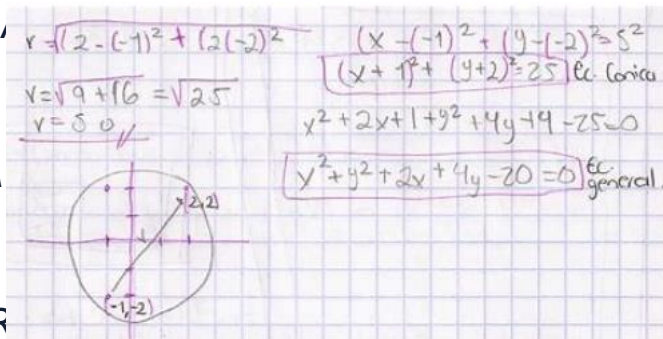 r=√(2-(-1)²+(2(-2)²
r=√9+16 =√25
r=5 υ
(2,2)
(-1,-2)
(x-(-1)²+(y-(-2)²=5²
(x+1)²+(y+2)²=25 Ec. Conica
x²+2x+1+y²+4y+4-25=0
x²+y²+2x+4y-20=0 Ec. general